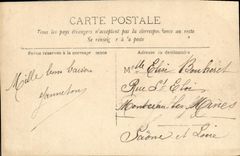 CARTE POSTALE
Tous les pays étrangers n'acceptent pas la correspondance au recto
Se renseigner à la poste
Partie réservée à la correspondance
Adresse du destinataire
Mille bons baisers
Mlle Elise
Rue St Eloi
Montceau les Mines
Saône et Loire